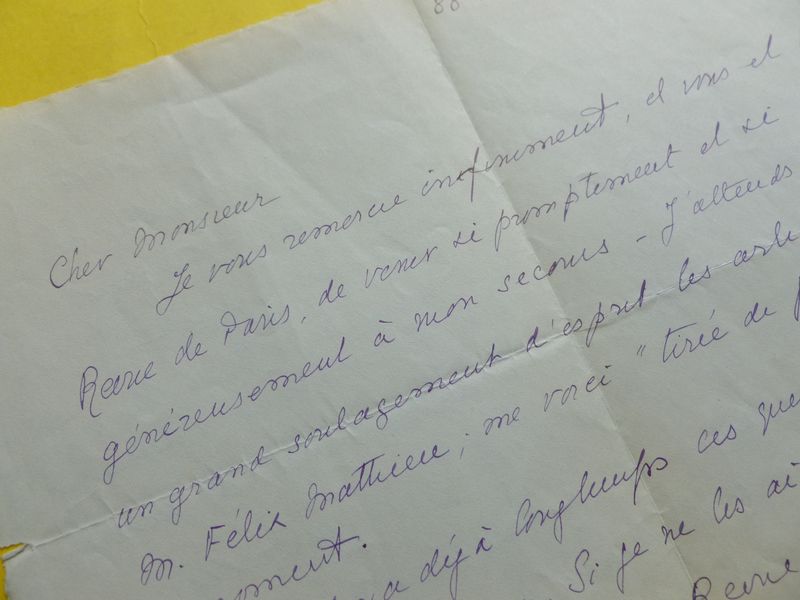 88
Cher Monsieur
Je vous remercie infiniment, et vous et
Revue de Paris, de venir si promptement et si
généreusement à mon secours - J'attends
un grand soulagement d'esprit les
M. Félix Mathieu ; me voici "tirée de
moment.
a déjà longtemps ces que
Si je ne les ai
Revue